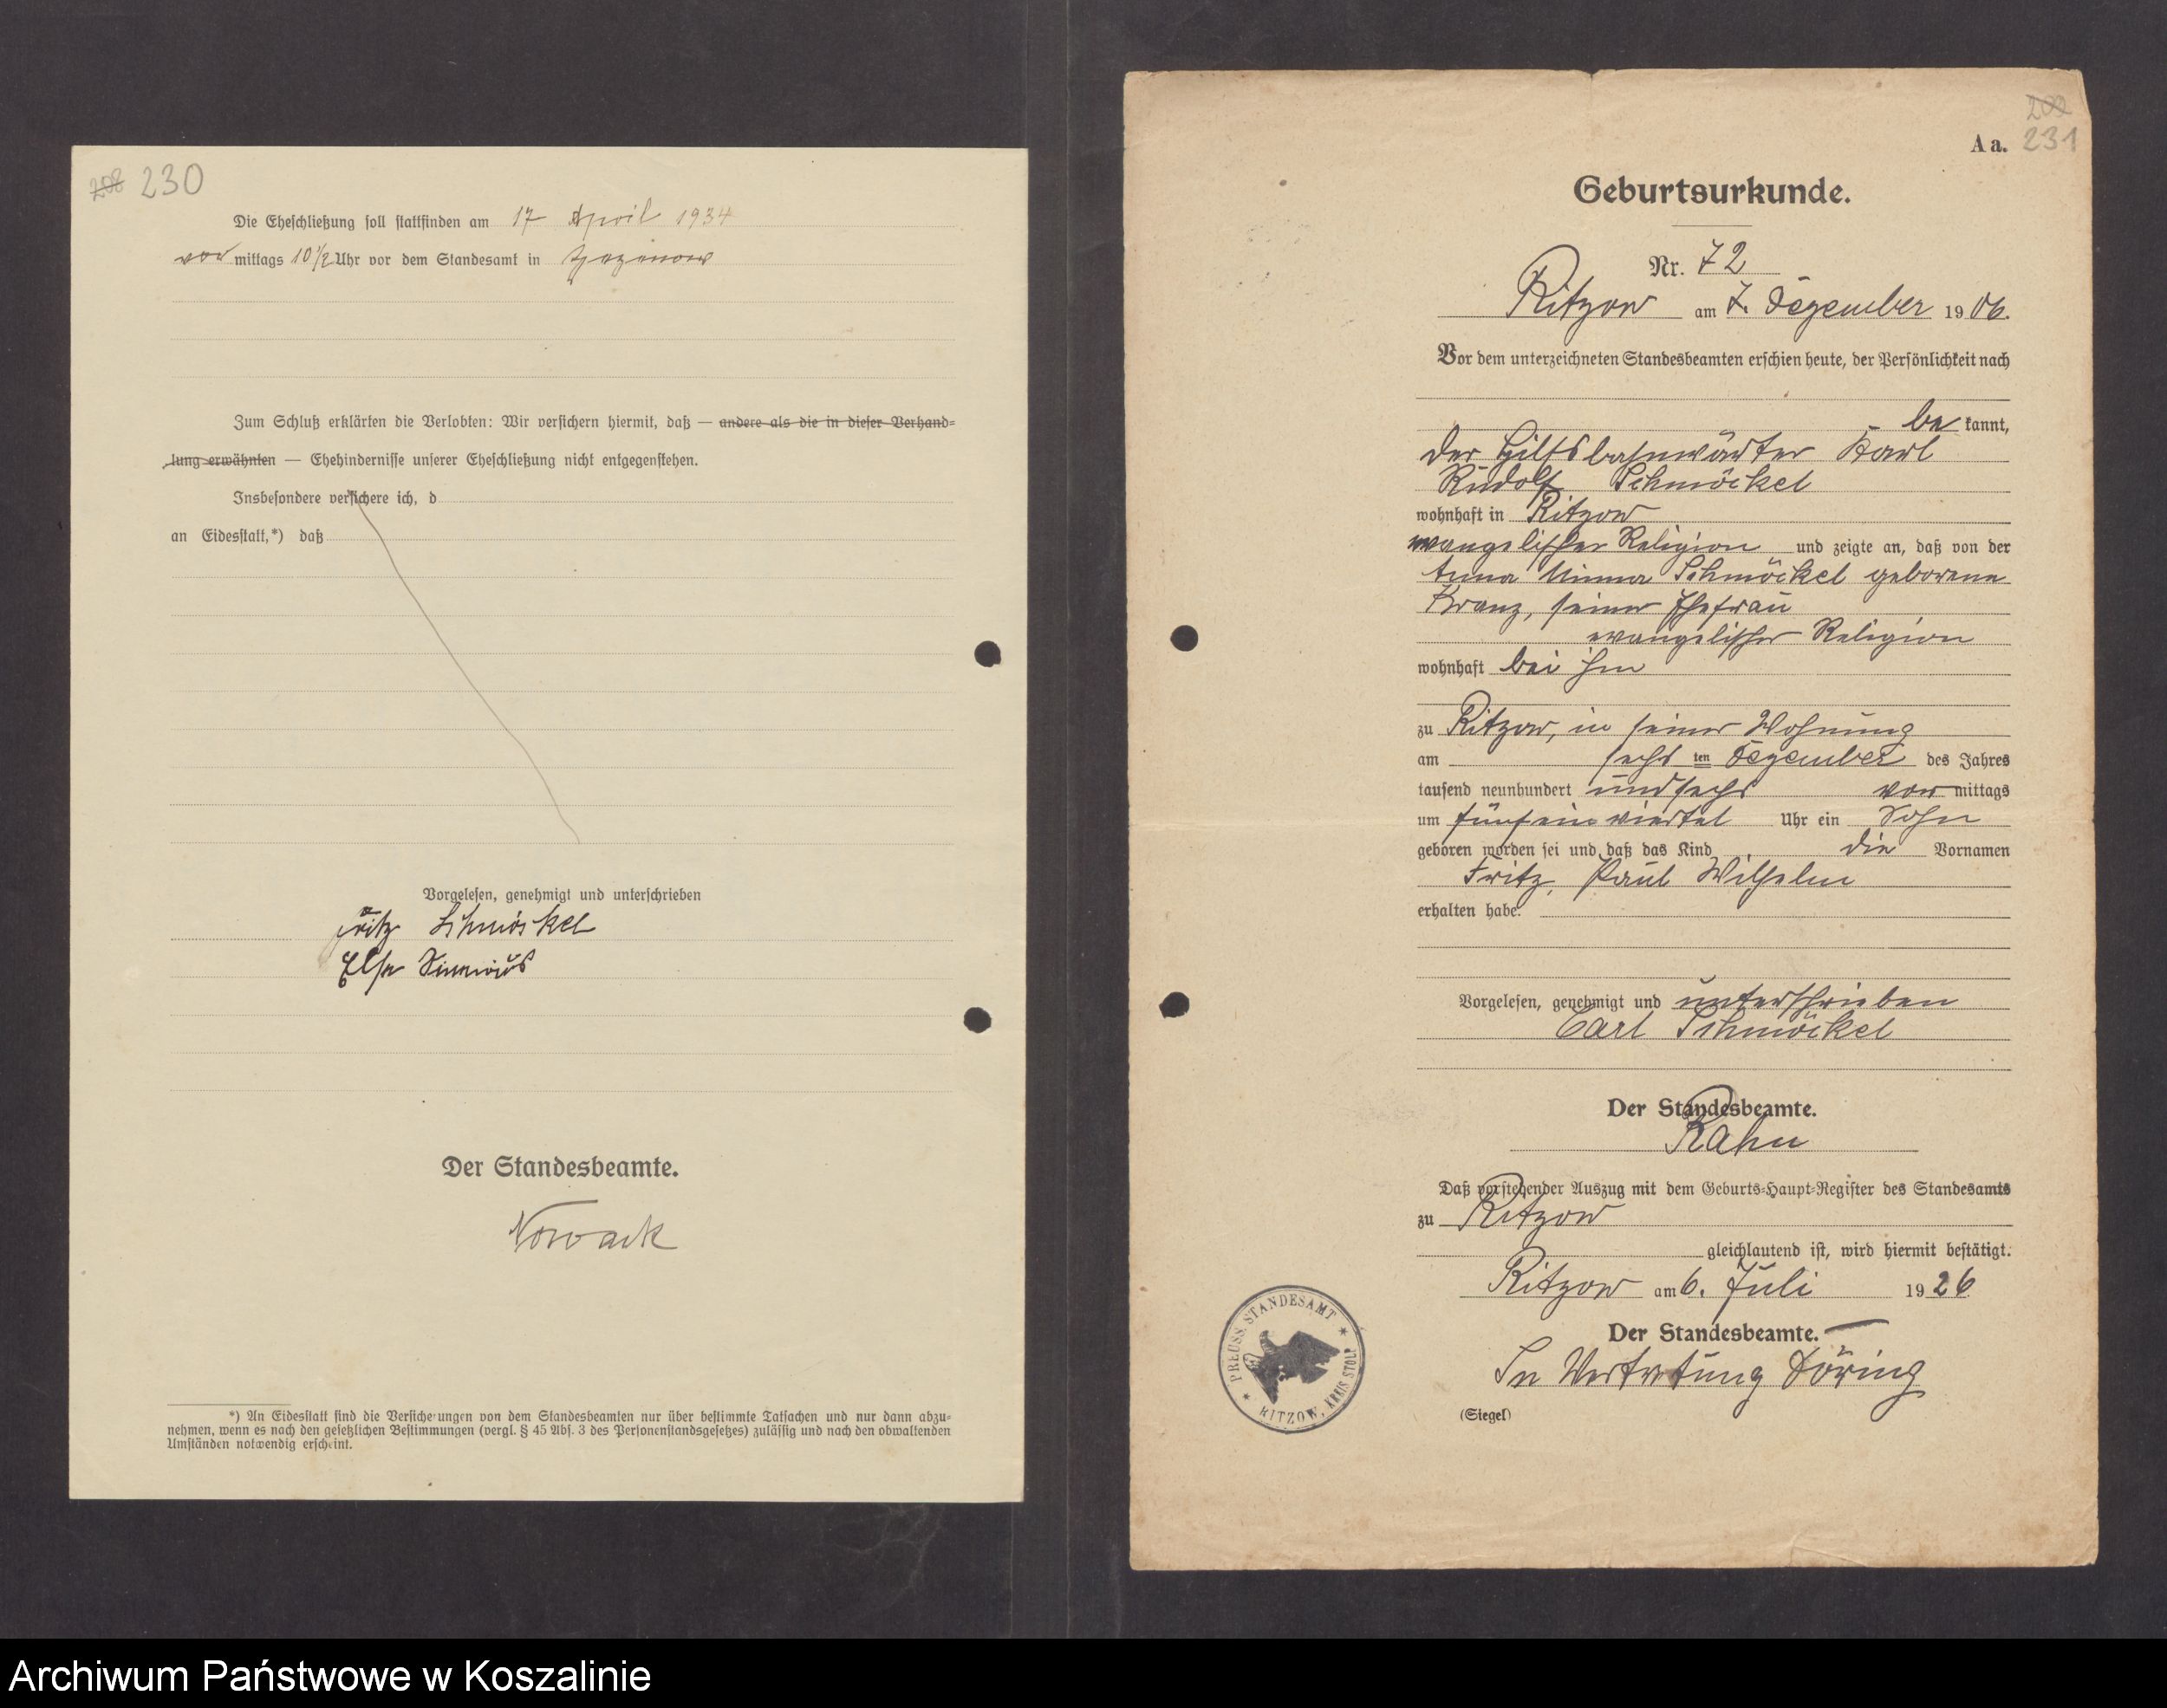 208 230
Die Eheschließung soll stattfinden am 17 April 1934
vor mittags 10 1/2 Uhr vor dem Standesamt in
Zum Schluß erklärten die Verlobten: Wir versichern hiermit, daß — andere als die in dieser Verhand-
lung erwähnten — Ehehindernisse unserer Eheschließung nicht entgegenstehen.
Insbesondere versichere ich, d
an Eidesstatt,*) daß
Vorgelesen, genehmigt und unterschrieben
Fritz Schmöckel
Else
Der Standesbeamte.
Nowack
*) An Eidesstatt sind die Versicherungen von dem Standesbeamten nur über bestimmte Tatsachen und nur dann abzu-
nehmen, wenn es nach den gesetzlichen Bestimmungen (vergl. § 45 Abs. 3 des Personenstandsgesetzes) zulässig und nach den obwaltenden
Umständen notwendig erscheint.
A a. 231
Geburtsurkunde.
Nr. 72
Ritzow am 7. Dezember 1906.
Vor dem unterzeichneten Standesbeamten erschien heute, der Persönlichkeit nach
be kannt,
der Hilfsbahnwärter Karl
Rudolf Schmöckel
wohnhaft in Ritzow
evangelischer Religion und zeigte an, daß von der
Anna Minna Schmöckel geborene
Kranz, seiner Ehefrau
evangelischer Religion
wohnhaft bei ihm
zu Ritzow, in seiner Wohnung
am sechs ten Dezember des Jahres
tausend neunhundert und sechs vor mittags
um fünf ein viertel Uhr ein Sohn
geboren worden sei und daß das Kind die Vornamen
Fritz, Paul Wilhelm
erhalten habe.
Vorgelesen, genehmigt und unterschrieben
Carl Schmöckel
Der Standesbeamte.
Rahn
Daß vorstehender Auszug mit dem Geburts-Haupt-Register des Standesamts
zu Ritzow
gleichlautend ist, wird hiermit bestätigt.
Ritzow am 6. Juli 1926
Der Standesbeamte.
In Vertretung Döring
(Siegel)
PREUSS. STANDESAMT * RITZOW, KREIS STOLP *
Archiwum Państwowe w Koszalinie